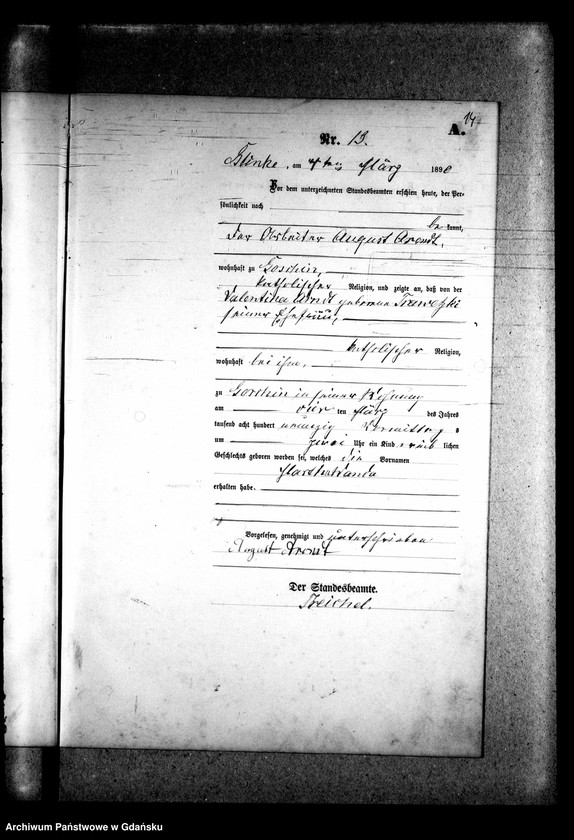 14
A.
Nr. 13.
am 7ten März 1890
Vor dem unterzeichneten Standesbeamten erschien heute, der Per-
sönlichkeit nach
be kannt,
der Arbeiter August Arendt,
wohnhaft zu Goschin,
katholischer Religion, und zeigte an, daß von der
Valentina Arndt geborene
seiner Ehefrau,
katholischer Religion,
wohnhaft bei ihm,
zu Goschin in seiner Wohnung
am vier ten März des Jahres
tausend acht hundert neunzig Vormittag s
um zwei Uhr ein Kind weib lichen
Geschlechts geboren worden sei, welches die Vornamen
Martha Wanda
erhalten habe.
Vorgelesen, genehmigt und unterschrieben
August Arndt
Der Standesbeamte.
Archiwum Państwowe w Gdańsku